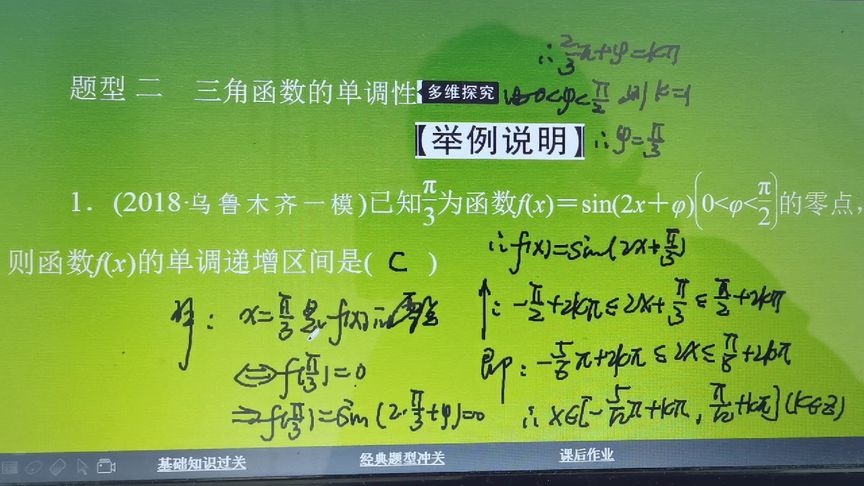 ∴ 2/3π+φ=kπ
题型二 三角函数的单调性 多维探究 0<φ<π/2 则 k=1
【举例说明】 ∴φ=π/3
1. (2018·乌鲁木齐一模)已知π/3为函数f(x)=sin(2x+φ)(0<φ<π/2)的零点,
则函数f(x)的单调递增区间是( C )
∴f(x)=sin(2x+π/3)
解: x=π/3是f(x)的零点
⇔f(π/3)=0
⇒f(π/3)=sin(2·π/3+φ)=0
↑: -π/2+2kπ≤2x+π/3≤π/2+2kπ
即: -5/6π+2kπ≤2x≤π/6+2kπ
∴ x∈[-5/12π+kπ, π/12+kπ](k∈Z)
基础知识过关 经典题型冲关 课后作业